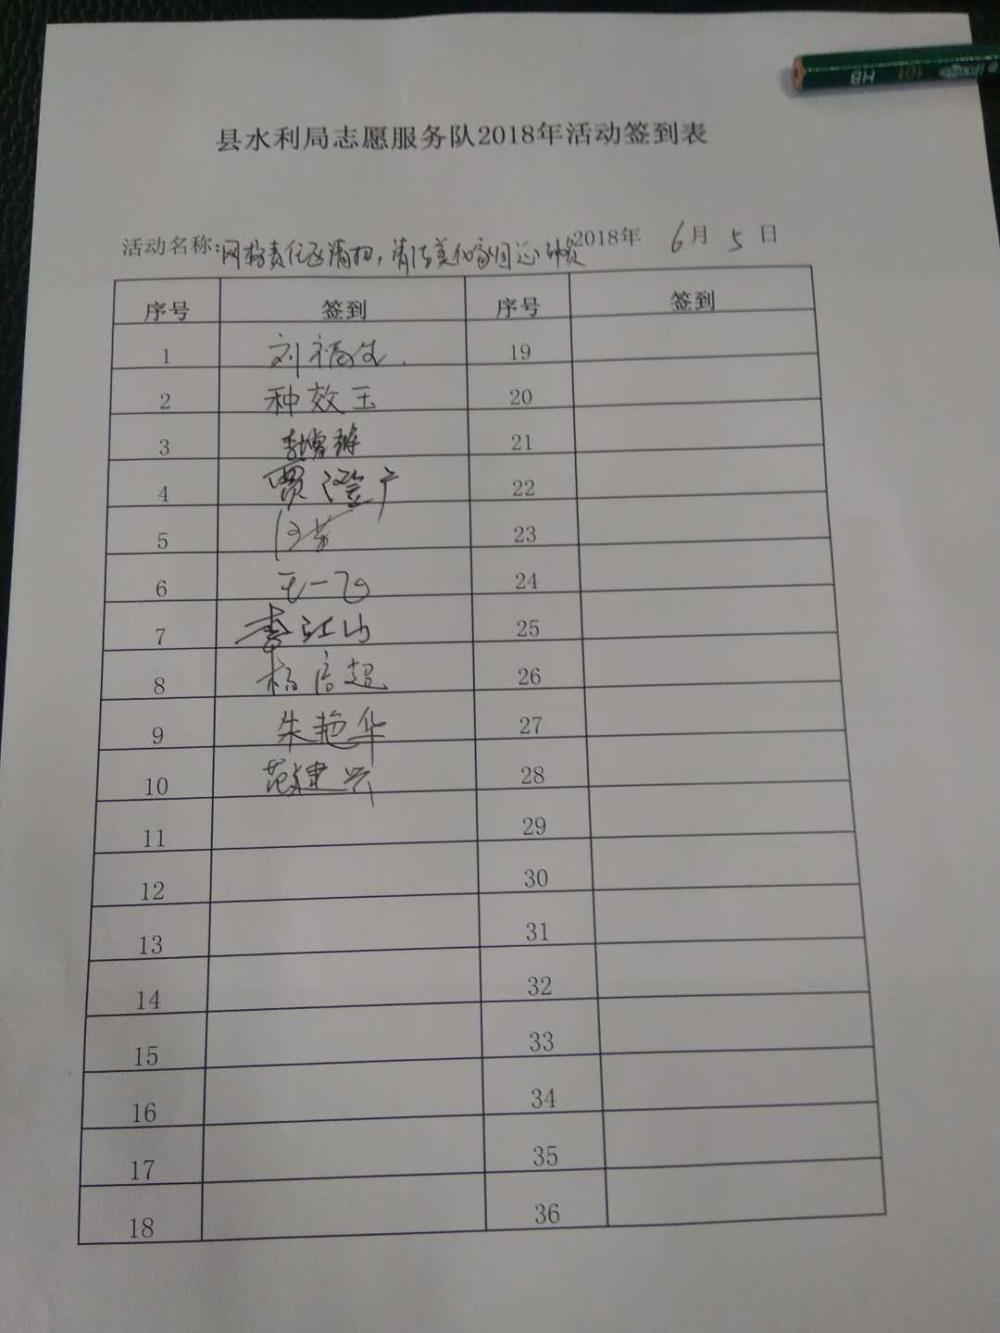 HB 101
县水利局志愿服务队2018年活动签到表
活动名称:网格责任区清扫,清洁美化家园 2018年 6月 5日
序号 签到 序号 签到
1 刘福生 19
2 种效玉 20
3 李 21
4 贾澄广 22
5 23
6 王一飞 24
7 李江山 25
8 杨启超 26
9 朱艳华 27
10 范建兴 28
11 29
12 30
13 31
14 32
15 33
16 34
17 35
18 36